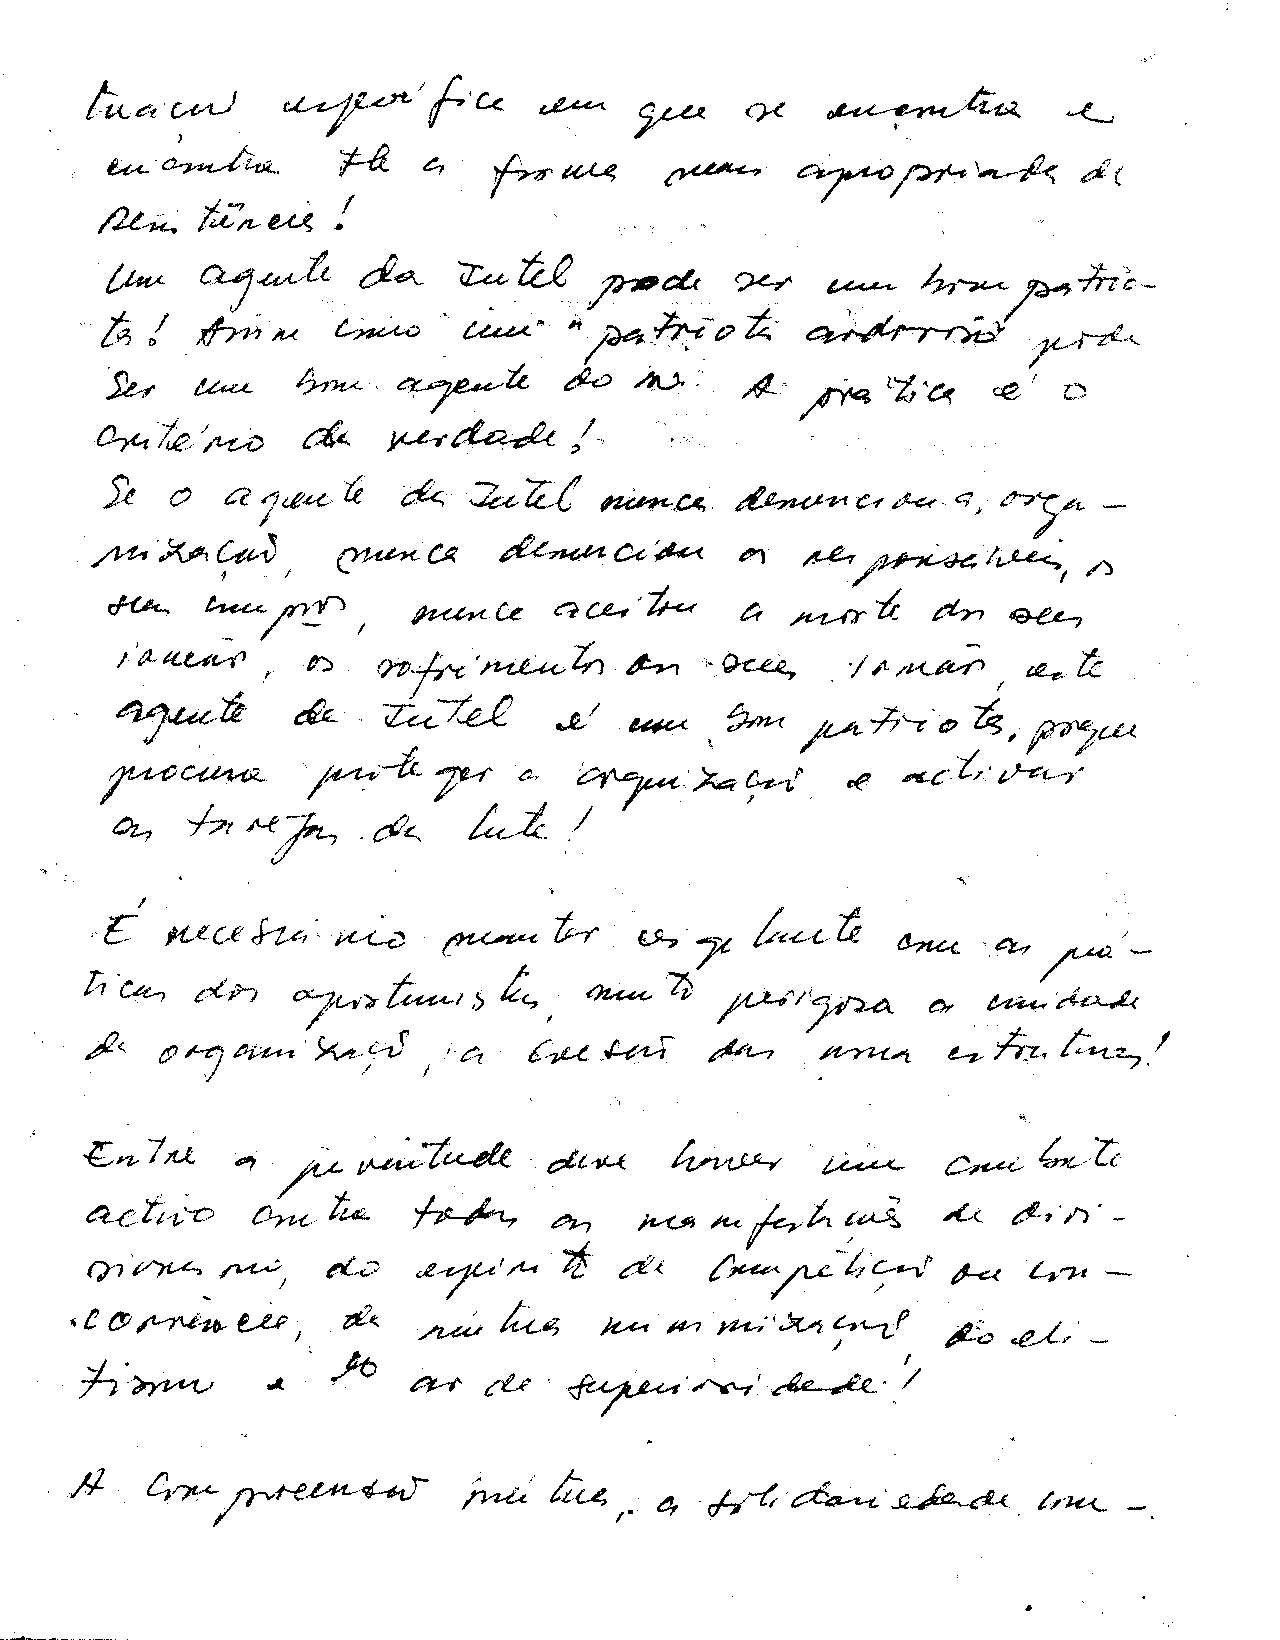 tuação específica em que se encontra e
encontra a forma mais apropriada de
resistência!
Um agente da Intel pode ser um bom patrio-
ta! Assim como um "patriota ardoroso pode
ser um bom agente do ini. A prática é o
critério da verdade!
Se o agente da Intel nunca denunciou a, orga-
nização, nunca denunciou os responsáveis, os
seus, nunca aceitou a morte dos seus
irmãos, os sofrimentos dos seus irmãos, este
agente da Intel é um bom patriota, porque
procura proteger a organização e activar
as tarefas da luta!
É necessário manter vigilante com as prá-
ticas dos oportunistas, muito perigosa a unidade
da organização, a coesão das nossas estruturas!
Entre a juventude deve haver um combate
activo contra todas as manifestações de divi-
sionismo, do espírito de competição ou con-
corrência, da mútua minimização, do eli-
tismo e do ar de superioridade!
A compreensão mútua, a solidariedade com-